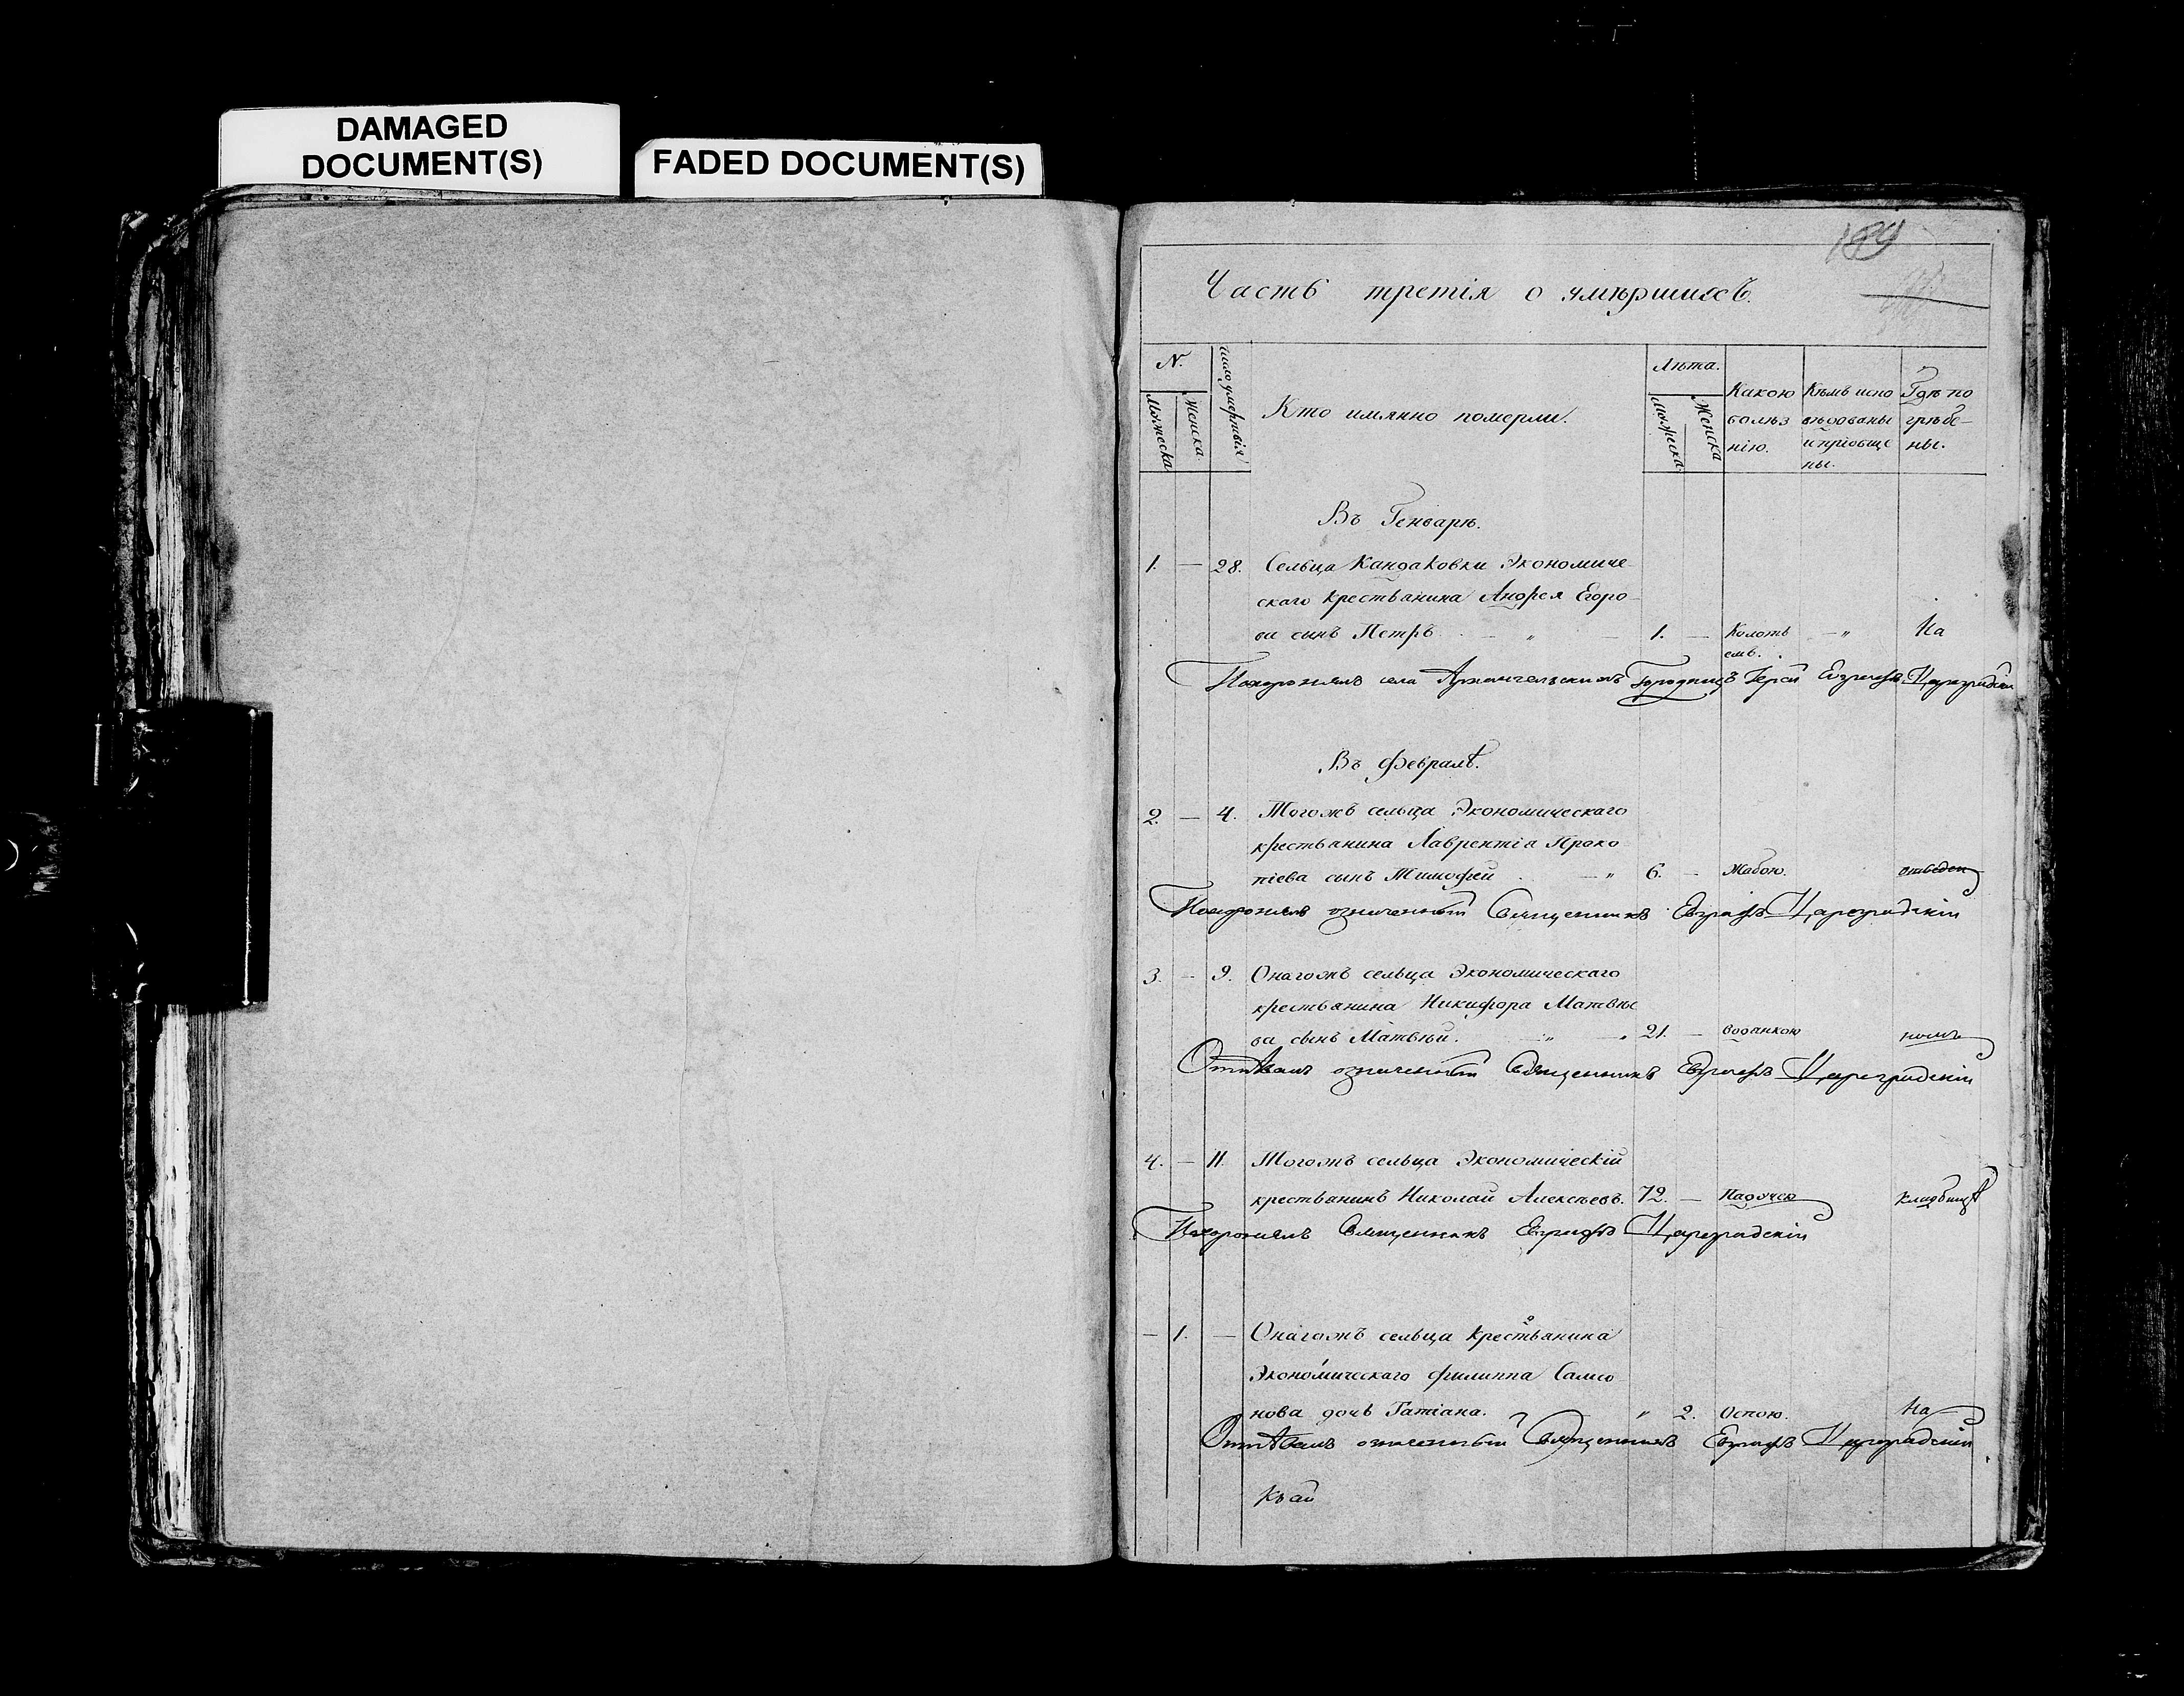 DAMAGED
DOCUMENT(S)
FADED DOCUMENT(S)
189
Часть третія о умѣршихъ.
N.
Мужеска
Женска
число умертвія
Кто имянно померли.
Лѣта.
Мужеска
Женска
Какою
болѣз
нію.
Кѣмъ испо
вѣдованы
и пріобще
ны.
Гдѣ по
грѣбе-
ны.
Въ Генварѣ.
1. — 28. Сельца Кандаковки Экономиче
скаго крестьянина Андрея Егоро
ва сынъ Петръ. 1. — Колоть — На
емъ.
Похоронялъ села Архангельскихъ Городищъ Іерей Евграфъ Цареградскій
Въ Февралѣ.
2. — 4. Тогожъ сельца Экономическаго
крестьянина Лаврентіа Проко
піева сынъ Тимофей 6. — Жабою. отведен
Похоронялъ означенный Священникъ Евграфъ Цареградскій
3. — 9. Онагожъ сельца Экономическаго
крестьянина Никифора Матвѣе
ва сынъ Матвѣй. 21. — водянкою номъ
Отпѣвалъ означенный Священникъ Евграфъ Цареградскій
4. — 11. Тогожъ сельца Экономическій
крестьянинъ Николай Алексѣевъ. 72. — Падучею кладбищѣ
Похоронялъ Священникъ Евграфъ Цареградскій
— 1. — Онагожъ сельца крестьянина
Экономическаго Филиппа Самсо
нова дочь Татіана. 2. Оспою. На
Отпѣвалъ означенный Священникъ Евграфъ Цареградскій